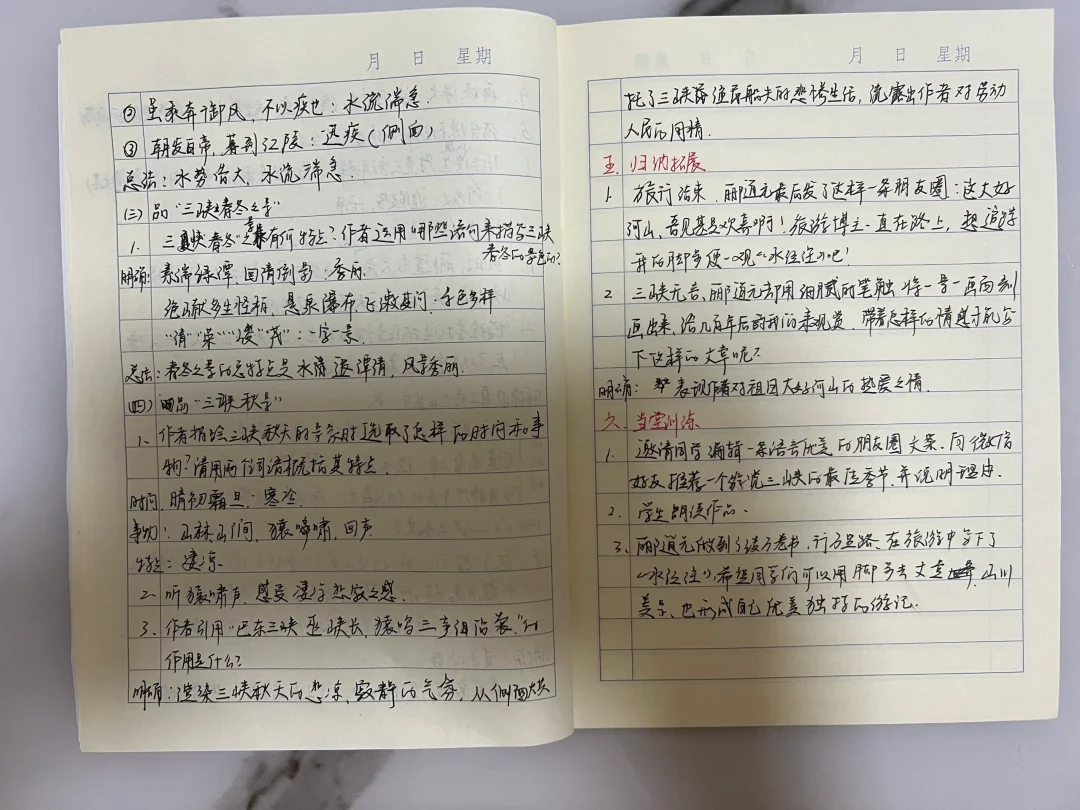 月 日 星期
② 虽乘奔御风，不以疾也：水流湍急.
③ 朝发白帝，暮到江陵：迅疾（侧面）
总结：水势浩大，水流湍急.
(三) 品“三峡春冬之景”
1. 三峡春冬之景有何特点？作者运用哪些语句来描写三峡
春冬的景色的？
明确：素湍绿潭，回清倒影：秀丽.
绝巘多生怪柏，悬泉瀑布飞漱其间：千色多样
“清”“荣”“峻”“茂”：一字一景.
总结：春冬之景的总特点是水清潭清，风景秀丽.
(四) 品“三峡秋景”
1、作者描绘三峡秋天的景象时选取了怎样的时间和事
物？请用两个词语概括其特点
时间：晴初霜旦：寒冷
事物：山林山间，猿啼啸，回声
特点：凄凉
2、听猿啸声，感受凄凉悲寂之感.
3、作者引用“巴东三峡巫峡长，猿鸣三声泪沾裳.”的
作用是什么？
明确：渲染三峡秋天的悲凉，寂静的气氛，从侧面烘
月 日 星期
托了三峡渔民船夫的悲惨生活，流露出作者对劳动
人民的同情.
五. 归纳拓展
1. 旅行结束，郦道元最后发了这样一条朋友圈：这大好
河山，吾见甚是欢喜啊！旅游博主一直在路上，想追寻
我的脚步便一观《水经注》吧！
2. 三峡无言，郦道元却用细腻的笔触将一景一画面刻
画出来，给几百年后的我们来观赏，带着怎样的情感才能写
下这样的文章呢？
明确：表现作者对祖国大好河山的热爱之情.
六. 当堂训练
1. 邀请同学编辑一条语言优美的朋友圈文案，向微信
好友推荐一个游览三峡的最佳季节，并说明理由.
2. 学生朗读作品.
3、郦道元做到了读万卷书，行万里路、在旅游中写下了
《水经注》，希望同学们可以用脚步去丈量山川
美景、也形成自己优美独特的游记.